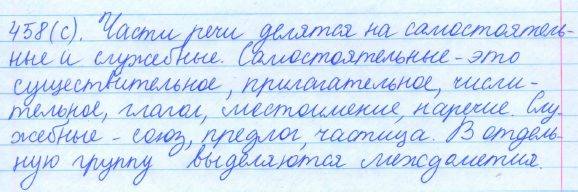 458(с). Части речи делятся на самостоятель-
ные и служебные. Самостоятельные - это
существительное, прилагательное, числи-
тельное, глагол, местоимение, наречие. Слу-
жебные - союз, предлог, частица. В отдель-
ную группу выделяются междометия.